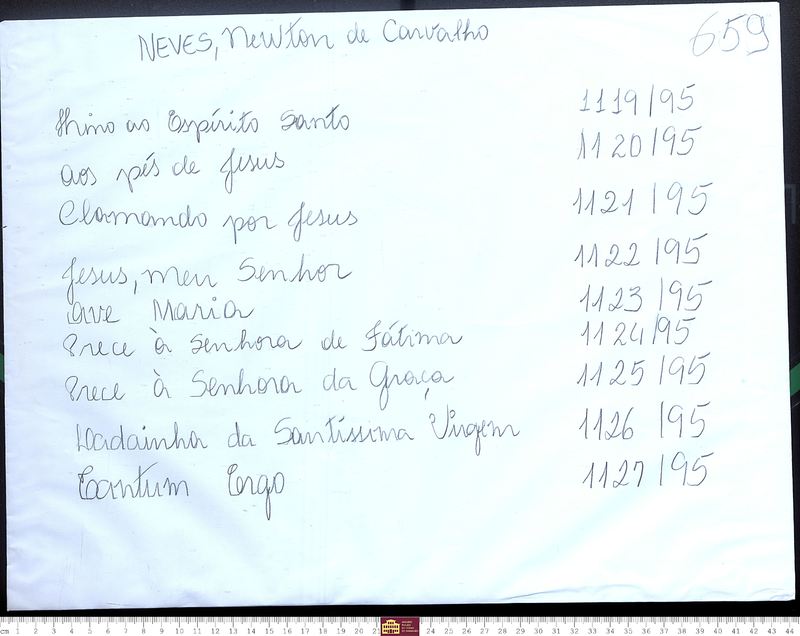 NEVES, Newton de Carvalho 659
Hino ao Espírito Santo 1119/95
aos pés de Jesus 1120/95
Clamando por Jesus 1121/95
Jesus, meu Senhor 1122/95
ave Maria 1123/95
Prece à Senhora de Fátima 1124/95
Prece à Senhora da Graça 1125/95
Ladainha da Santíssima Virgem 1126/95
Tantum Ergo 1127/95
cm 1 2 3 4 5 6 7 8 9 10 11 12 13 14 15 16 17 18 19 20 24 25 26 27 28 29 30 31 32 33 34 35 36 37 38 39 40 41 42 43 44